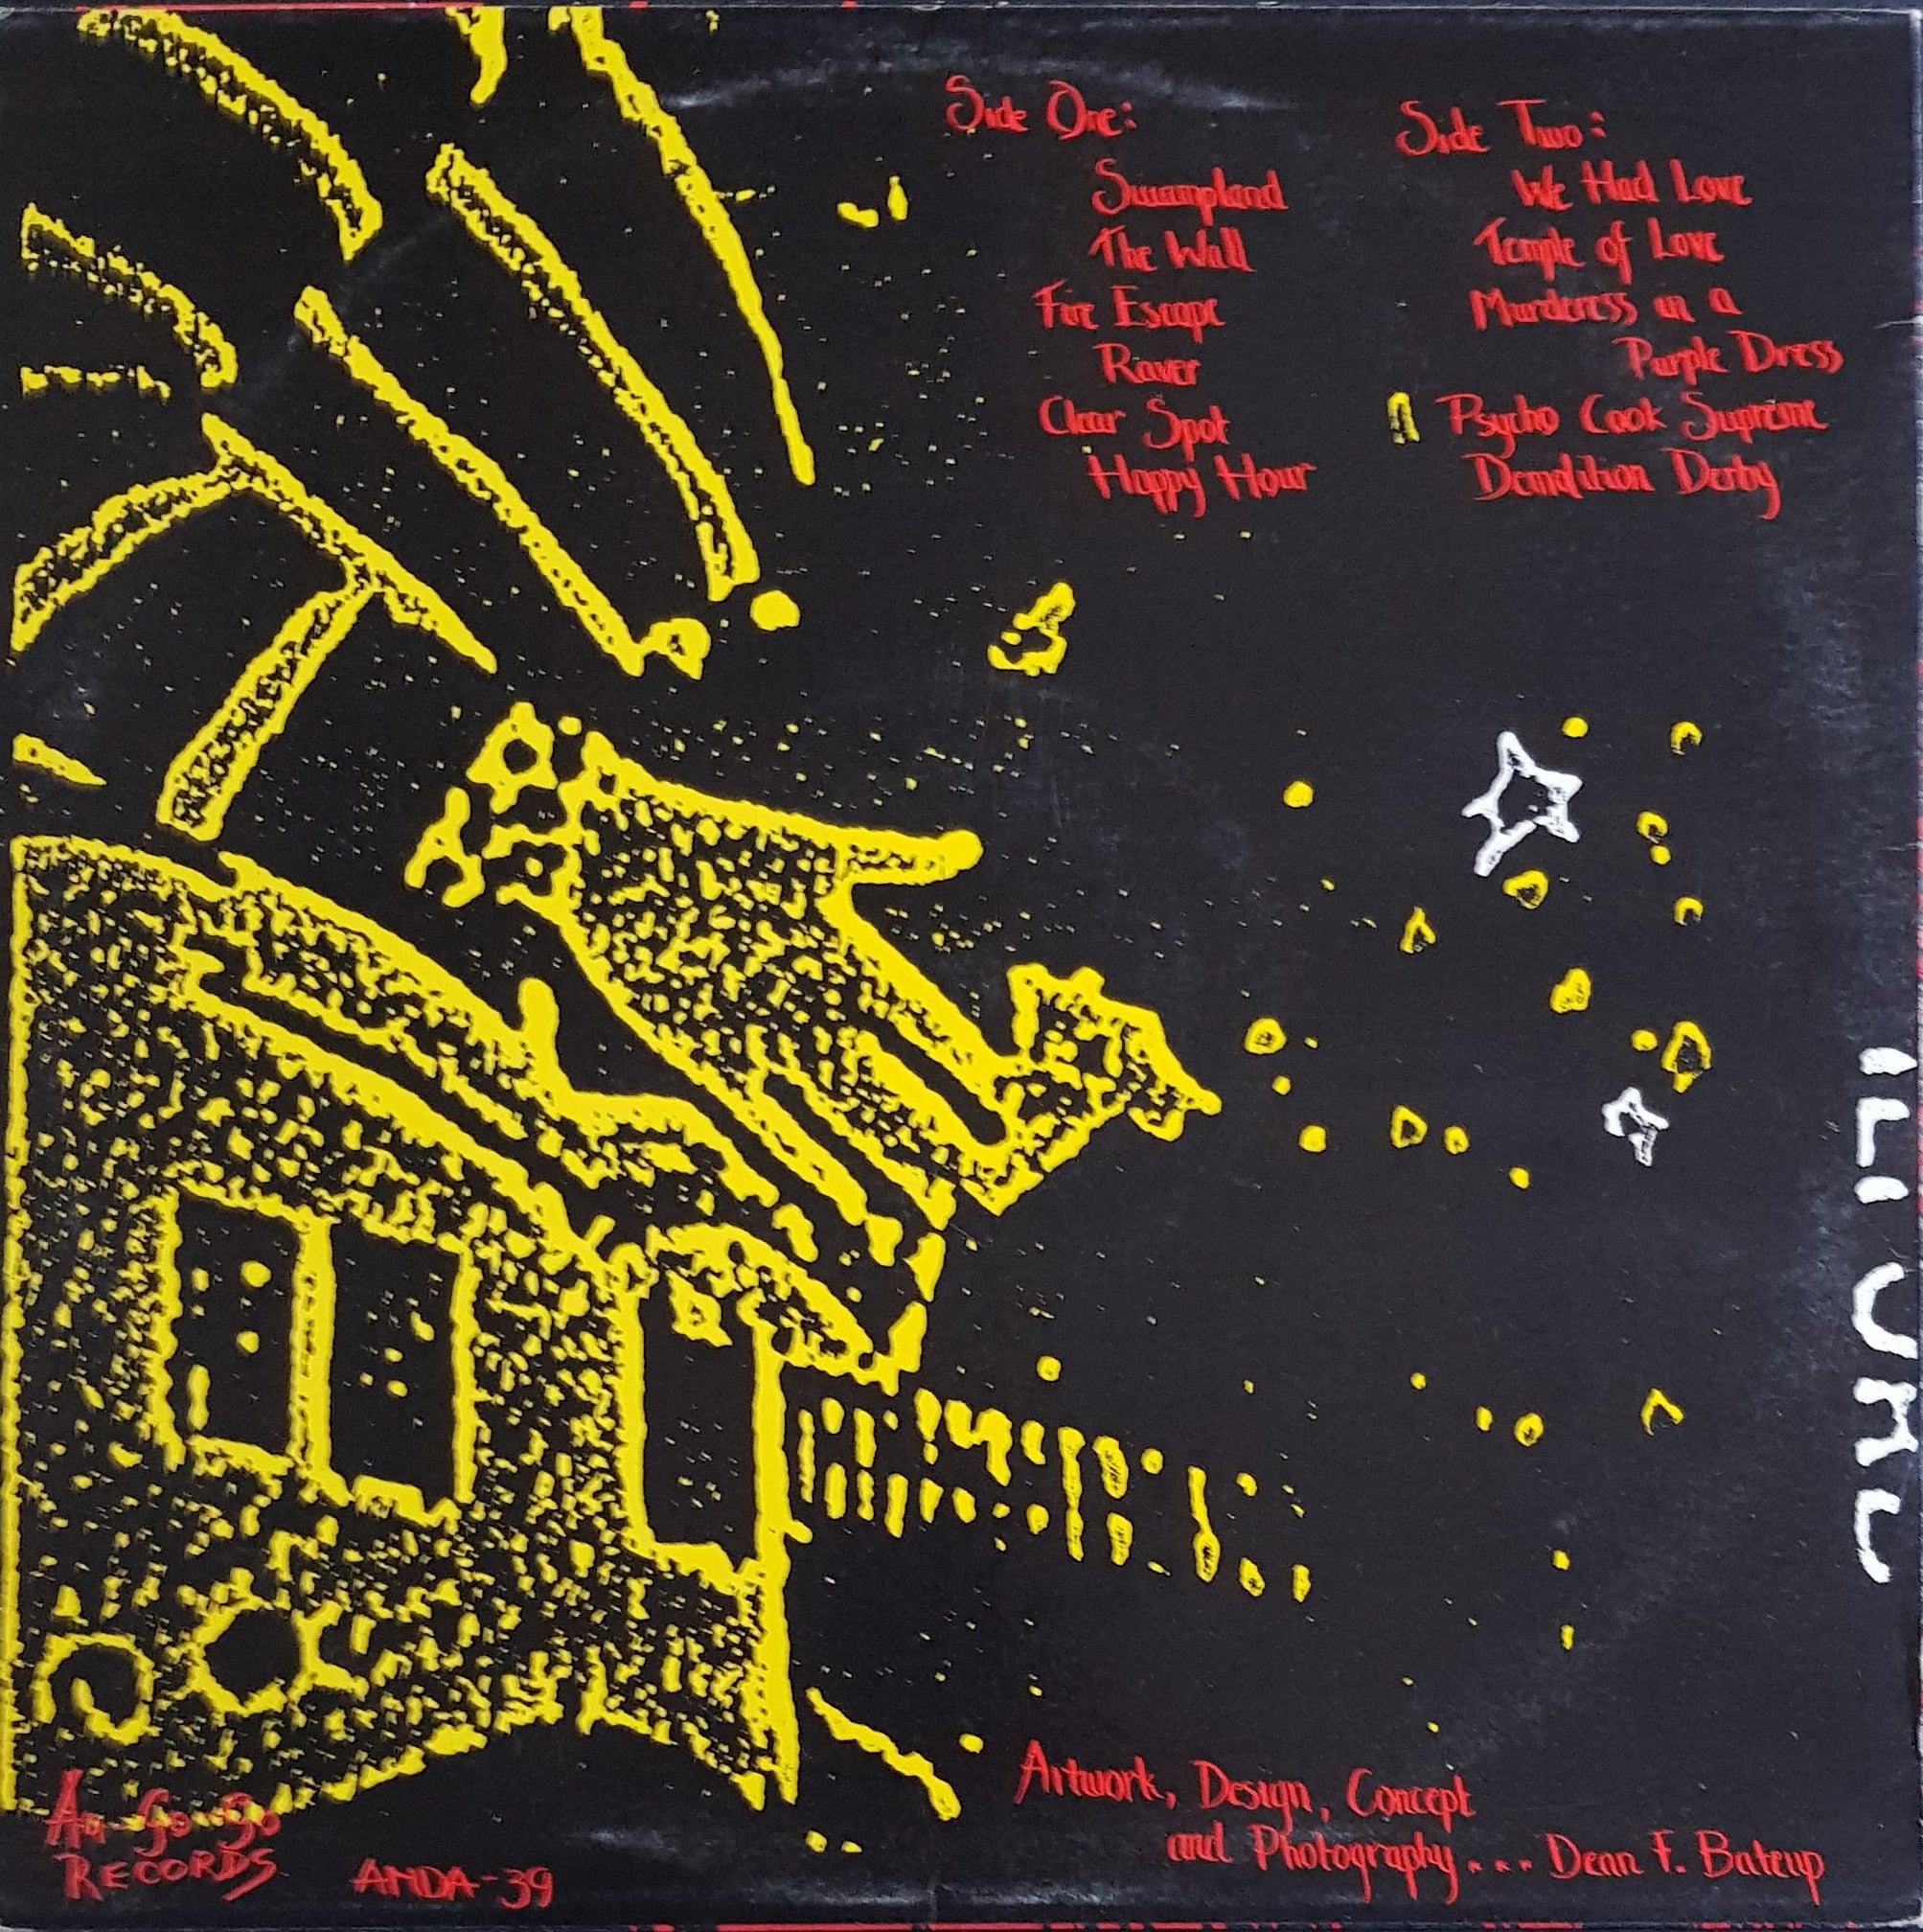 Side One:
Swampland
The Wall
Fire Escape
Raver
Clear Spot
Happy Hour
Side Two:
We Had Love
Temple of Love
Murderess in a
Purple Dress
Psycho Cook Supreme
Demolition Derby
Artwork, Design, Concept
and Photography... Dean F. Bateup
Au-Go-Go
RECORDS
ANDA-39